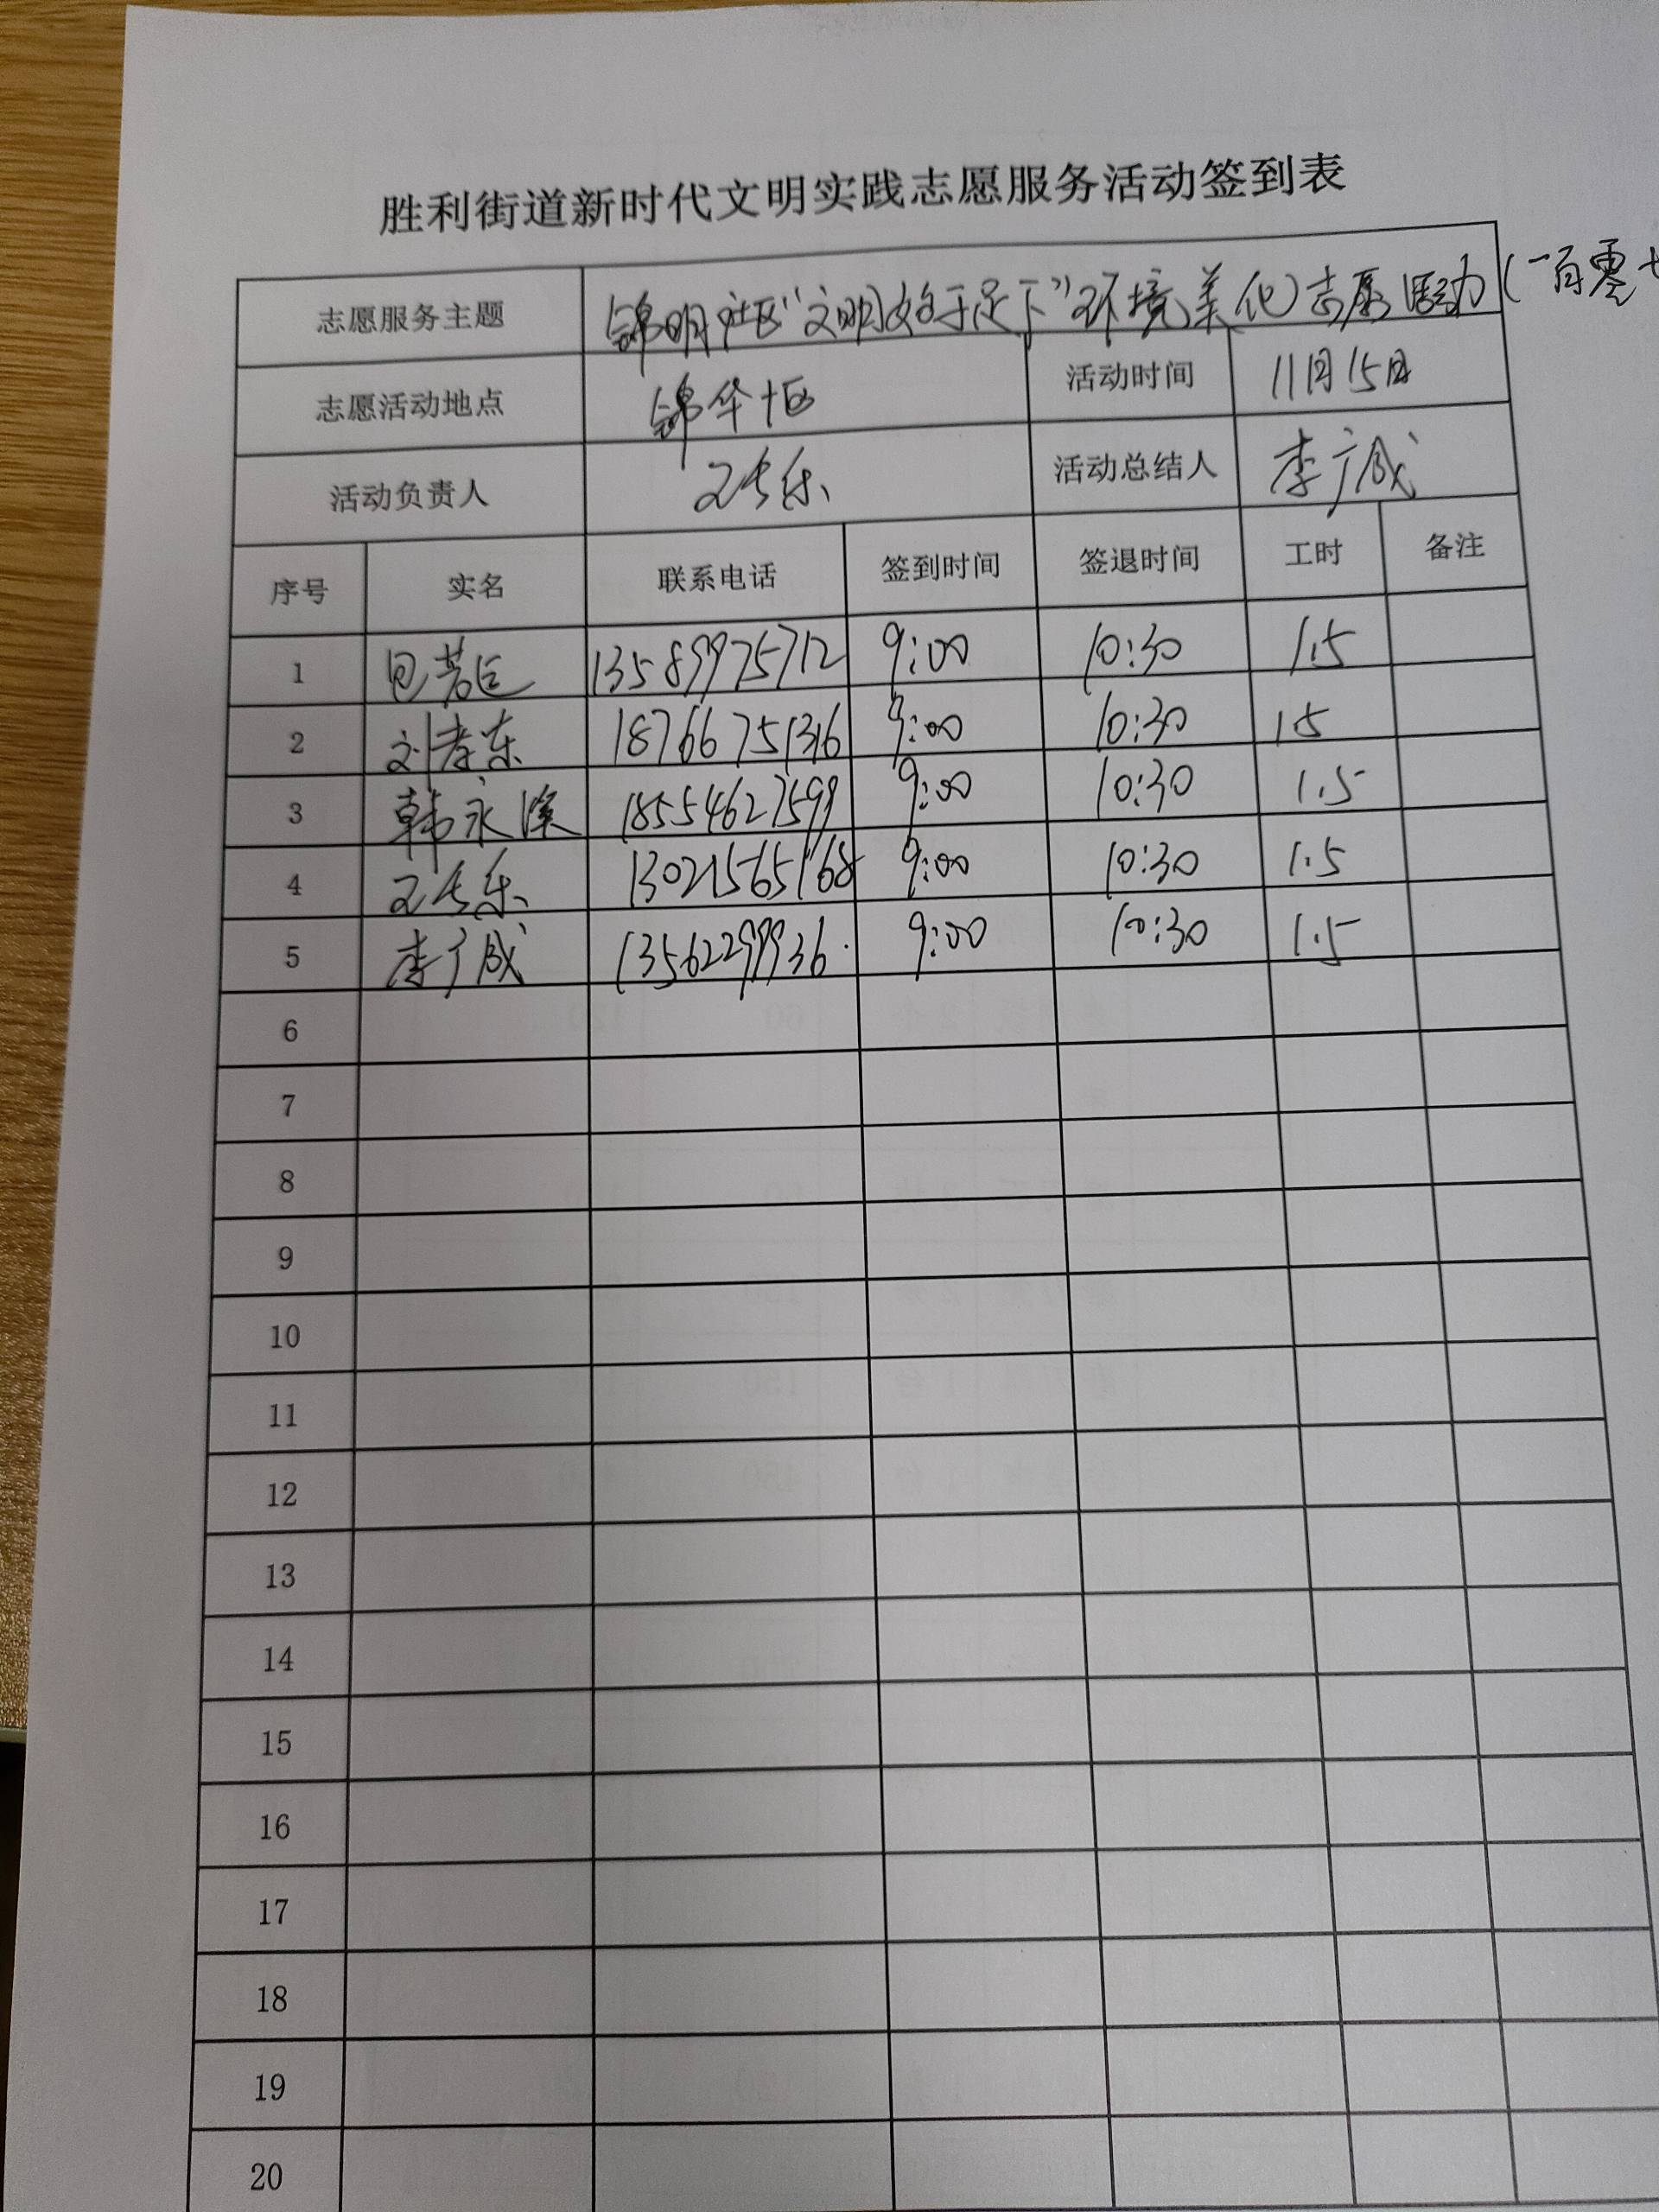 胜利街道新时代文明实践志愿服务活动签到表
志愿服务主题 锦明社区“文明始于足下”环境美化志愿活动(一百零七
志愿活动地点 锦华十区 活动时间 11月15日
活动负责人 王长乐 活动总结人 李广成
序号 实名 联系电话 签到时间 签退时间 工时 备注
1 13589975712 9:00 10:30 1.5
2 刘孝东 18766751316 9:00 10:30 15
3 韩永 18554627599 9:00 10:30 1.5
4 王长乐 13021565168 9:00 10:30 1.5
5 李广成 13562299936 9:00 10:30 1.5
6
7
8
9
10
11
12
13
14
15
16
17
18
19
20